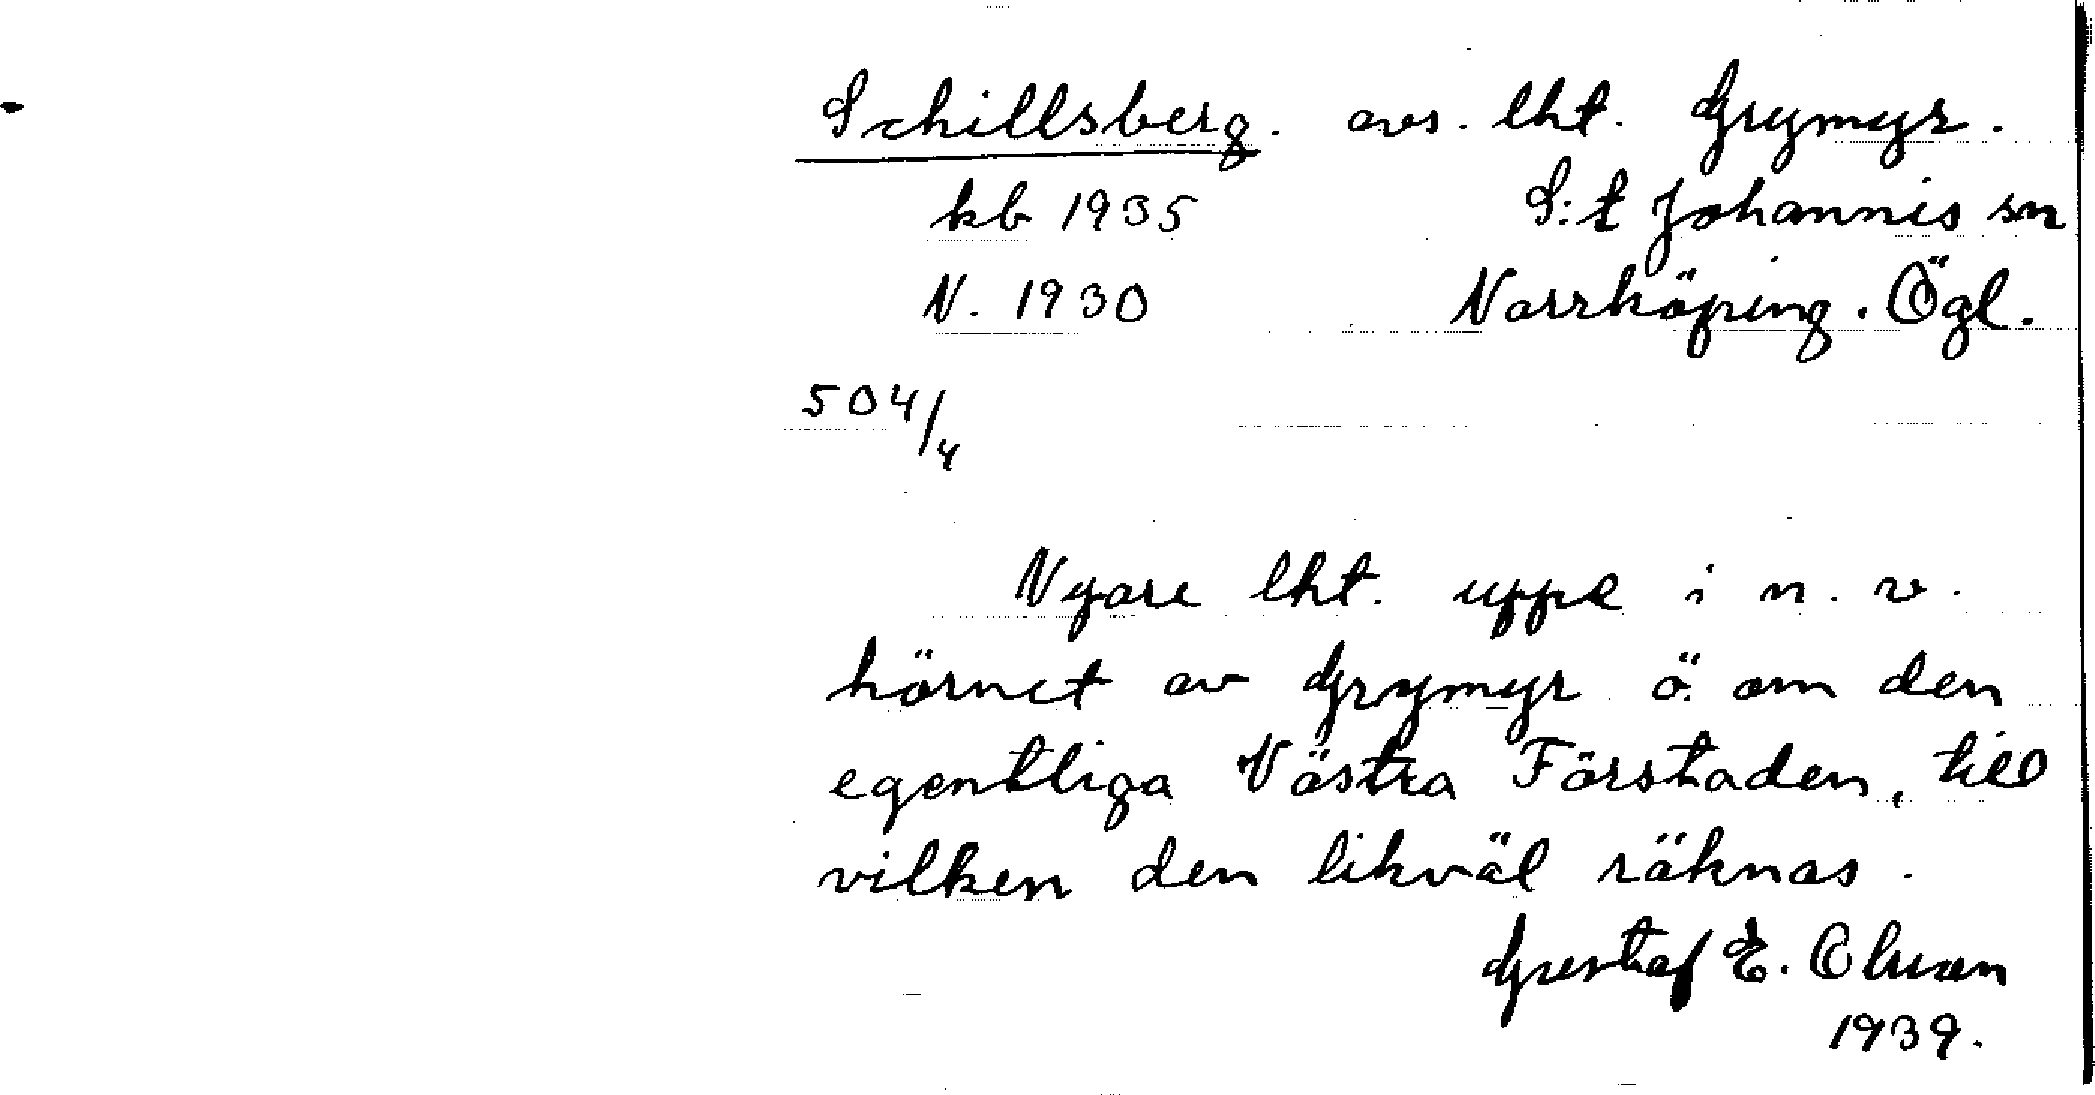 Schillsberg. avs. lht. Grymyr.
kb 1935 S:t Johannis sn
N. 1930 Norrköping. Ögl.
504/4
Nyare lht. uppe i n. v.
hörnet av Grymyr ö. om den
egentliga Västra Förstaden, till
vilken den likväl räknas.
Gustaf E. Olsson
1939.